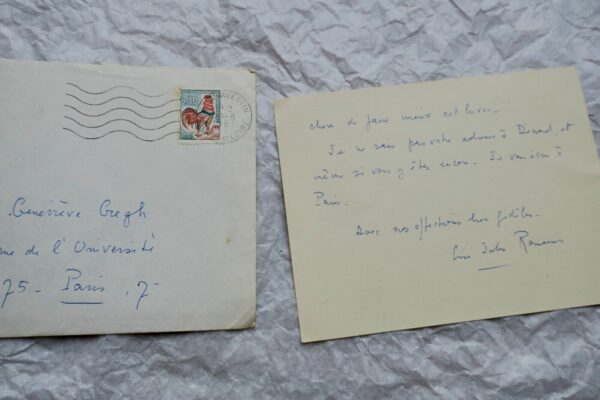 Geneviève Gregh
de l'Université
75 - Paris, 7
0,30
de faire mieux cet hiver.
Je ne sais pas votre adresse à Dinard, et
même si vous y êtes encore. Je vous écris à
Paris.
Avec nos affections bien fidèles.
Lise Jules Romains